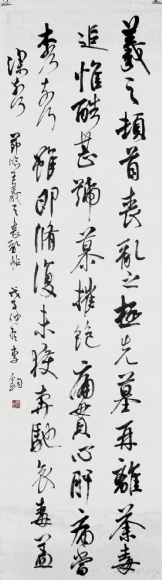 羲之頓首喪亂之極先墓再離荼毒
追惟酷甚號慕摧絕痛貫心肝痛當
奈何奈何雖即脩復未獲奔馳哀毒益
深奈何 節臨王羲之喪亂帖 戊子仲